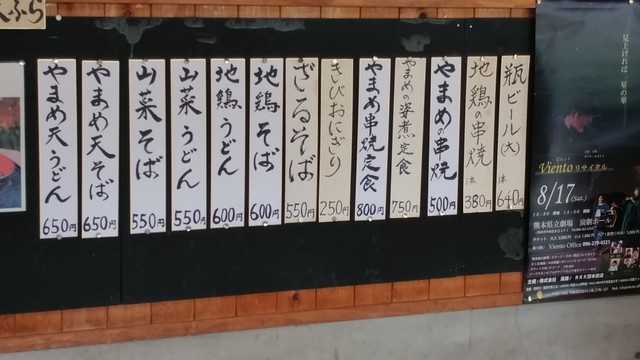 瓶ビール(大) 1本 640円
地鶏の串焼 1本 380円
やまめの串焼 500円
やまめの姿煮定食 750円
やまめ串焼定食 800円
きびおにぎり 250円
ざるそば 550円
地鶏そば 600円
地鶏うどん 600円
山菜うどん 550円
山菜そば 550円
やまめ天そば 650円
やまめ天うどん 650円
ぷら
見上げれば、星の華
Viento リサイタル
8/17(Sat.)
熊本県立劇場 演劇ホール
Viento Office 096-279-4321